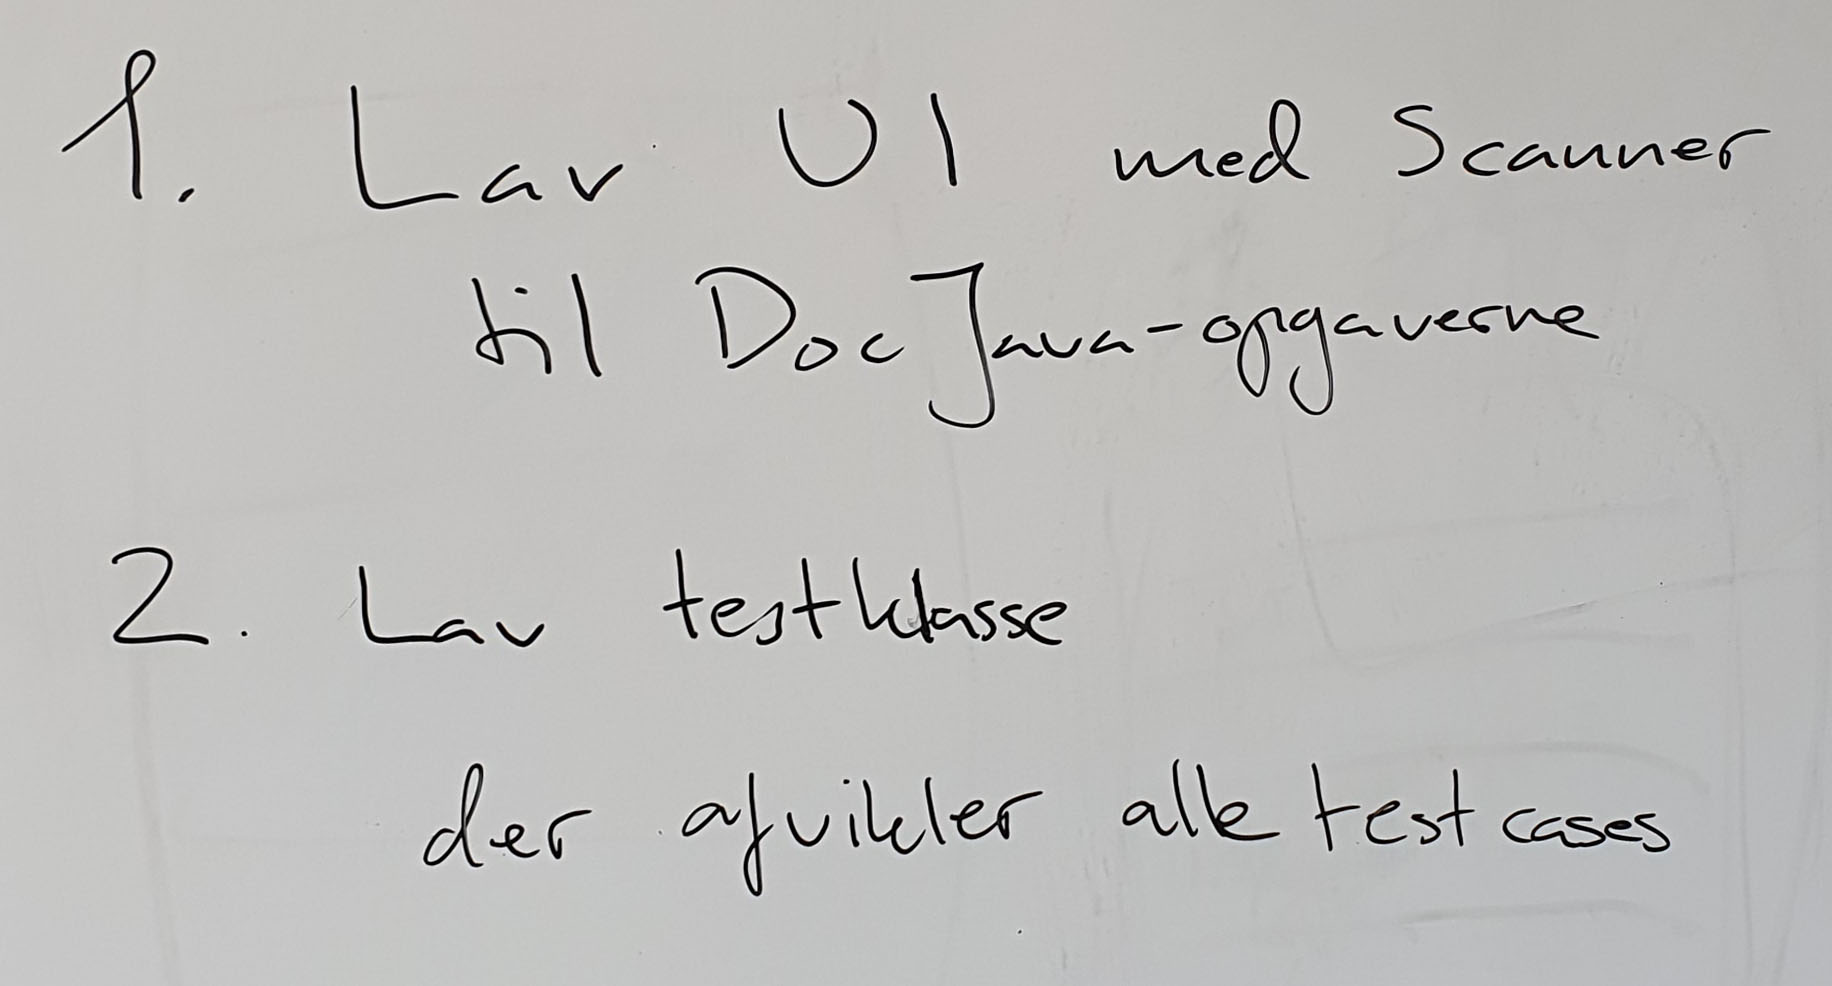 1. Lav UI med Scanner
til DocJava-opgaverne
2. Lav testklasse
der afvikler alle testcases